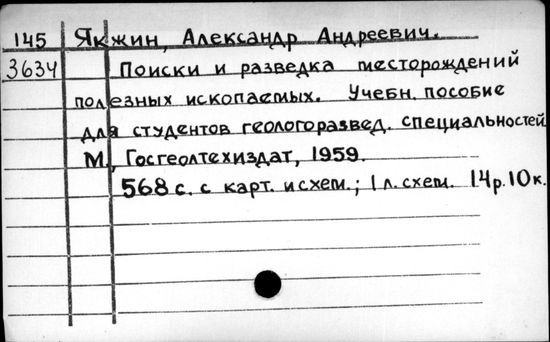 145 Якжин, Александр Андреевич.
3634 Поиски и разведка месторождений
полезных ископаемых. Учебн. пособие
для студентов геологоразвед. специальностей.
М., Госгеолтехиздат, 1959.
568 с. с карт. и схем.; 1 л. схем. 14р.10к.